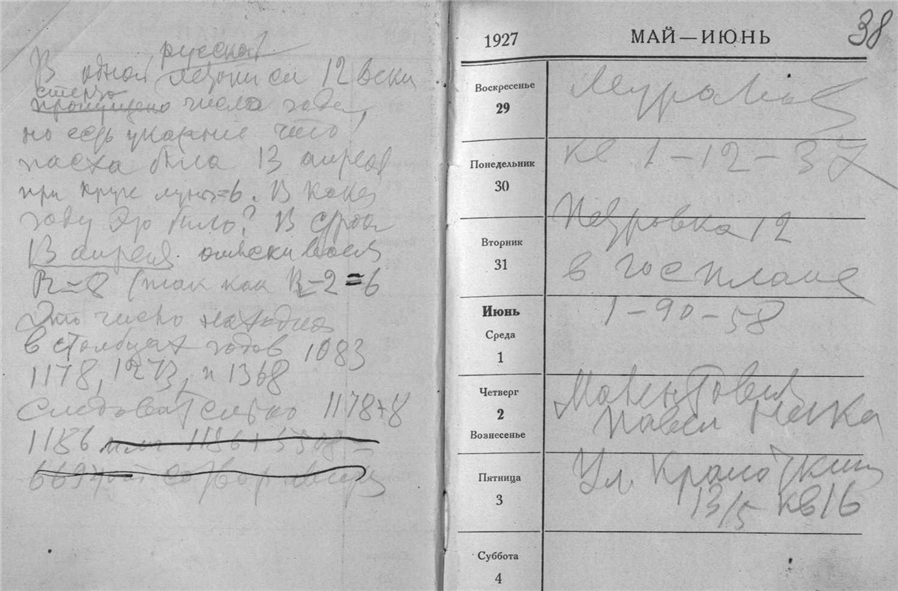 русской
В одной летописи 12 века
стерто
пропущено число года,
но есть указание что
пасха была 13 апреля
при круге луны=6. В каком
году это было? В строке
13 апреля отыскиваем
R=8 (так как R-2=6
Это число находится
в столбцах годов 1083
1178, 1273, и 1368
Следовательно 1178+8
1186 или 1186+5508=
6694
38
1927
МАЙ — ИЮНЬ
Воскресенье
29
Муралов
Понедельник
30
кв 1-12-37
Вторник
31
Петровка 12
в госплане
Июнь
Среда
1
1-90-58
Четверг
2
Вознесенье
Павел
Пятница
3
Ул. Кропоткина
13/5 кв 16
Суббота
4